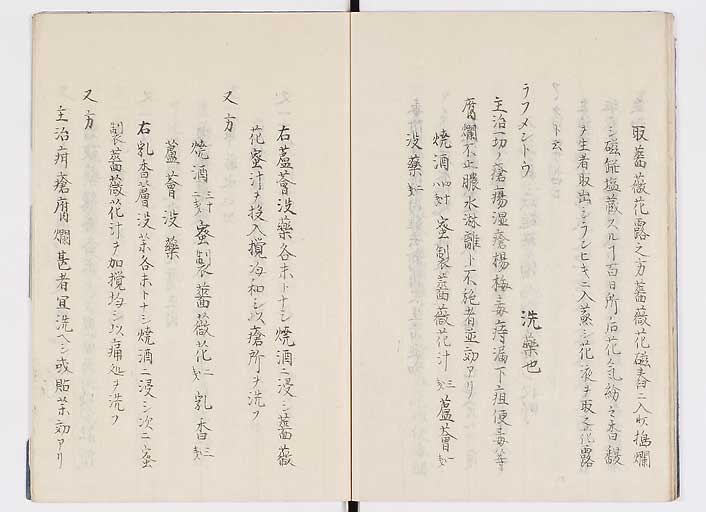 取薔薇花露之方薔薇花磁舂ニ入レ搗爛
シ磁缾塩蔵スルヿ百日所后花気紛々香馥
ナ生者取出シランヒキニ入蒸シ花液ヲ取正花露
ト云
ラフメントウ 洗薬也
主治一切ノ瘡瘍湿瘡楊梅毒痔漏下疳便毒等
腐爛不止膿水淋離ト不絶者並効アリ
焼酒 蜜製薔薇花汁 蘆薈
没薬
右蘆薈没薬各末トナシ焼酒ニ浸シ薔薇
花蜜汁ヲ投入攪海和シ以瘡所ヲ洗フ
又方
焼酒 蜜製薔薇花 乳香
蘆薈没薬
右乳香薈没薬各末トナシ焼酒ニ浸シ次ニ蜜
製薔薇花汁ヲ加攪均シ以痛処ヲ洗フ
又方
主治疳瘡腐爛甚者宜洗ヘシ或貼薬効アリ